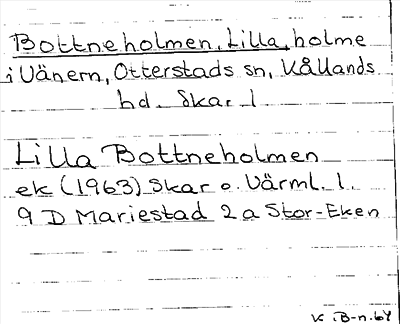 Bottneholmen, Lilla, holme
i Vänern, Otterstads sn, Kållands
hd. Skar. l.
Lilla Bottneholmen
ek (1963) Skar o. Värml. l.
9 D Mariestad 2 a Stor-Eken